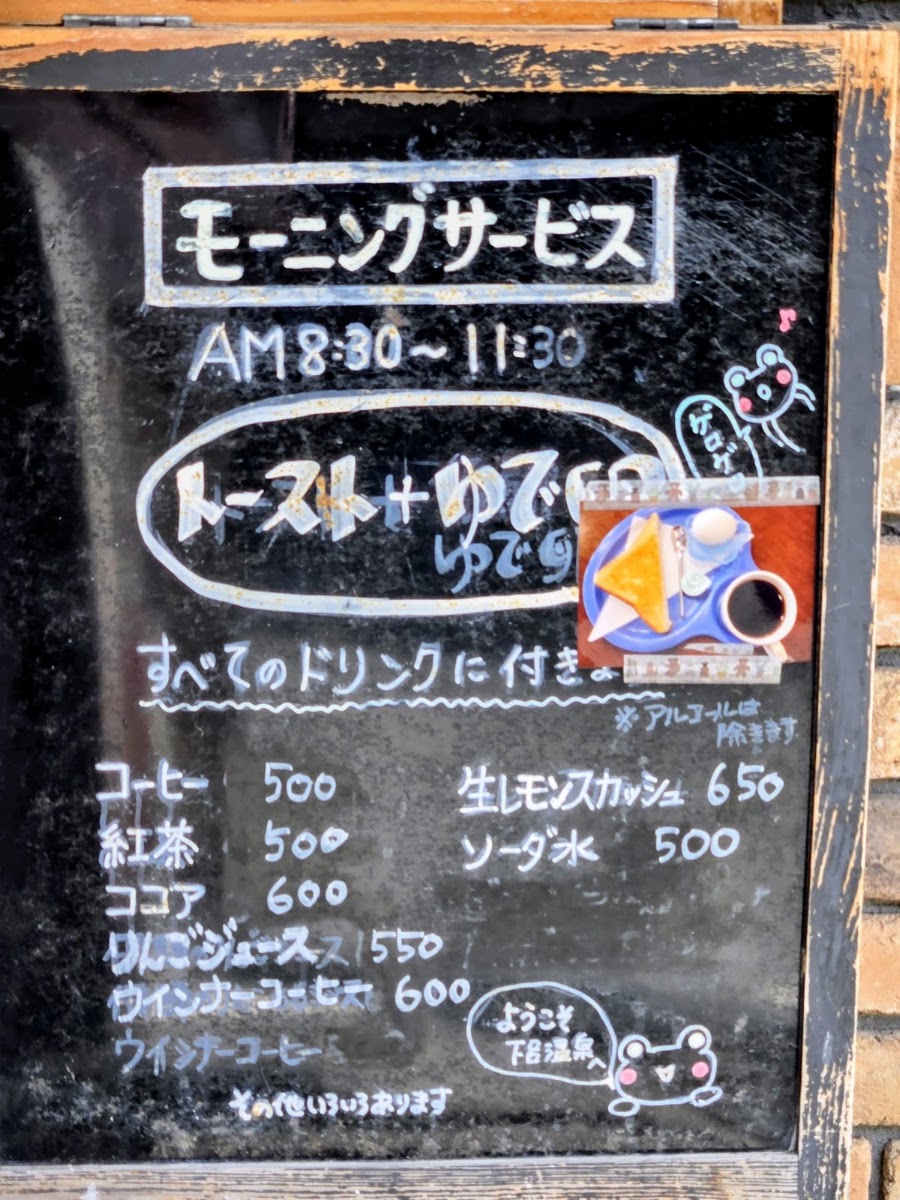 モーニングサービス
AM 8:30〜11:30
ゲロゲロ
トースト+ゆで
ゆで
すべてのドリンクに付きま
※アルコールは
除きます
コーヒー 500
紅茶 500
ココア 600
りんごジュース 550
ウインナーコーヒー 600
ウインナーコーヒー
生レモンスカッシュ 650
ソーダ水 500
ようこそ
下呂温泉へ
その他いろいろあります